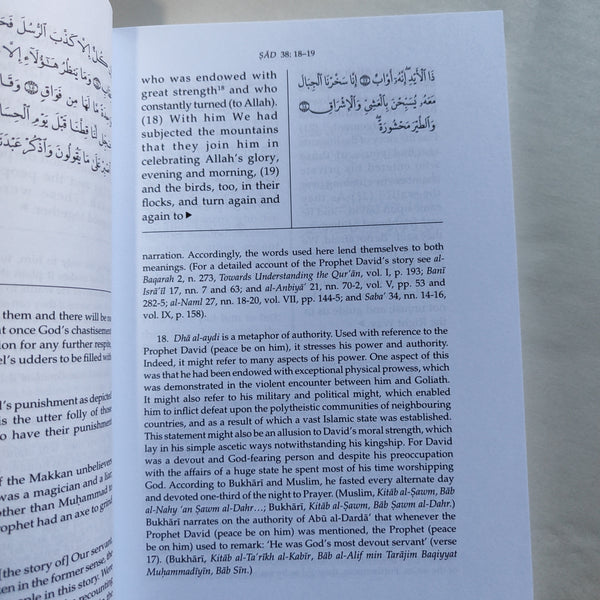 إِن كُلٌّ إِلَّا كَذَّبَ ٱلرُّسُلَ فَحَقَّ
وَمَا يَنظُرُ هَٰٓؤُلَآءِ إِلَّا
مَّا لَهَا مِن فَوَاقٍ ١٥
لَّنَا قِطَّنَا قَبْلَ يَوْمِ
عَلَىٰ مَا يَقُولُونَ وَٱذْكُرْ عَبْدَنَا
them and there will be no
at once God's chastisement
tion for any further respite,
el's udders to be filled with
d's punishment as depicted
is the utter folly of those
o have their punishment
of the Makkan unbelievers
was a magician and a liar.
other than Muḥammad to
prophet had an axe to grind
[the story of] Our servant
ken in the former sense, the
people in this story. Were
recounting
ṢĀD 38: 18–19
who was endowed with
great strength¹⁸ and who
constantly turned (to Allah).
(18) With him We had
subjected the mountains
that they join him in
celebrating Allah's glory,
evening and morning, (19)
and the birds, too, in their
flocks, and turn again and
again to ▶
ذَا ٱلْأَيْدِ إِنَّهُۥٓ أَوَّابٌ ١٧ إِنَّا سَخَّرْنَا ٱلْجِبَالَ
مَعَهُۥ يُسَبِّحْنَ بِٱلْعَشِيِّ وَٱلْإِشْرَاقِ ١٨
وَٱلطَّيْرَ مَحْشُورَةً
narration. Accordingly, the words used here lend themselves to both
meanings. (For a detailed account of the Prophet David's story see al-
Baqarah 2, n. 273, Towards Understanding the Qur'ān, vol. I, p. 193; Banī
Isrā'īl 17, nn. 7 and 63; and al-Anbiyā' 21, nn. 70-2, vol. V, pp. 53 and
282-5; al-Naml 27, nn. 18-20, vol. VII, pp. 144-5; and Saba' 34, nn. 14-16,
vol. IX, p. 158).
18. Dhā al-aydi is a metaphor of authority. Used with reference to the
Prophet David (peace be on him), it stresses his power and authority.
Indeed, it might refer to many aspects of his power. One aspect of this
was that he had been endowed with exceptional physical prowess, which
was demonstrated in the violent encounter between him and Goliath.
It might also refer to his military and political might, which enabled
him to inflict defeat upon the polytheistic communities of neighbouring
countries, and as a result of which a vast Islamic state was established.
This statement might also be an allusion to David's moral strength, which
lay in his simple ascetic ways notwithstanding his kingship. For David
was a devout and God-fearing person and despite his preoccupation
with the affairs of a huge state he spent most of his time worshipping
God. According to Bukhārī and Muslim, he fasted every alternate day
and devoted one-third of the night to Prayer. (Muslim, Kitāb al-Ṣawm, Bāb
al-Nahy 'an Ṣawm al-Dahr...; Bukhārī, Kitāb al-Ṣawm, Bāb Ṣawm al-Dahr.)
Bukhārī narrates on the authority of Abū al-Dardā' that whenever the
Prophet David (peace be on him) was mentioned, the Prophet (peace
be on him) used to remark: 'He was God's most devout servant' (verse
17). (Bukhārī, Kitāb al-Ta'rīkh al-Kabīr, Bāb al-Alif min Tarājim Baqiyyat
Muḥammadiyīn, Bāb Sīn.)